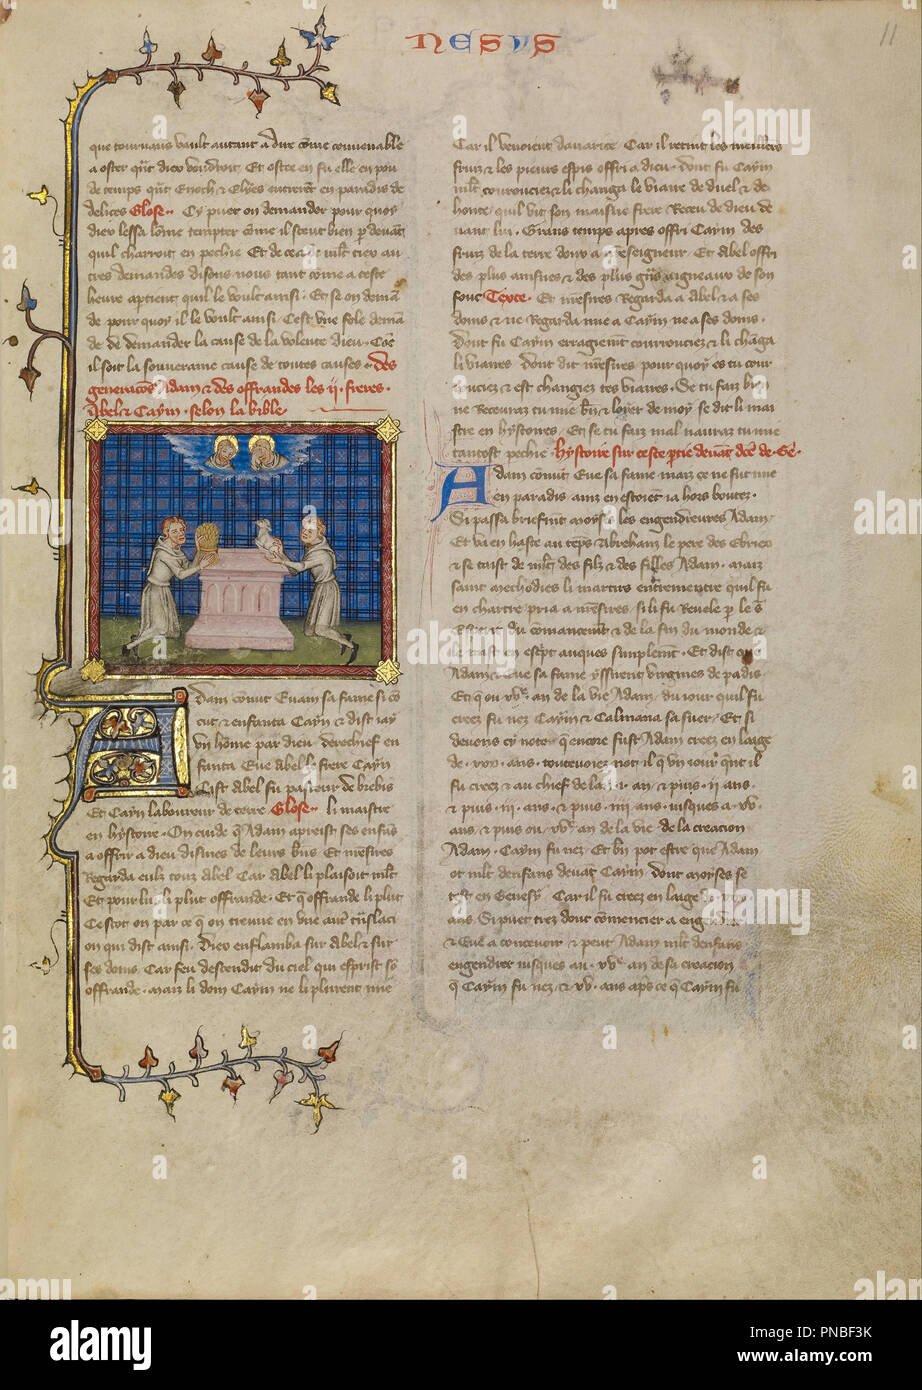 NESUS
11
que tournans vault autant a dire come convenable
a oster qnt dieu voudroit. Et ostee en fu elle en pou
de temps qnt Enoch, & Elyes entrerent en paradis de
delices Glose. Cy puet on demander pour quoy
dieu lessa lome tempter come il sceut bien p devant
quil charroit en pechie Et de ce
tres demandes disons nous tant come a ceste
heure aptient quil le voult ainsi. Et se on deman
de pour quoy il le voult ainsi. Cest une fole deman
de de demander la cause de la volente dieu. Come
il soit la souveraine cause de toutes causes. des
generacons Adam & des offrandes les ii. freres.
Abel & Caym. selon la bible
Adam conut Evam sa fame si co
cut, & enfanta Caym & dist iay
un home par dieu. derechief en
fanta Eve Abel le frere Caym
Cist Abel fu pasteur de brebis
Et Caym laboureur de terre Glose. li maistre
en hystoire. On cuide q Adam aprist ses enfans
a offrir a dieu dismes de leurs bns Et nresires
Regarda eulz touz abel Car abel li plaisoit mlt
Et pour lui li plut offrande. Et q offrande li plut
Ce scot on par ce q on treuve en une autre translaci
on qui dist ainsi. Dieu enflamba sur Abel & sur
ses dons. Car feu descendit du ciel qui esprist so
offrande. mais li don Caym ne li plurent mie
Car il venoient davarice Car il retint les meilleurs
fruiz & les pieurs espis offri a dieu. dont fu Caym
mlt courrouciez & li changa le viaire de duel & de
honte, quil vit son maisne frere Receu de dieu de
vant lui. Grans temps apres offri Caym des
fruiz de la terre dons a nreseigneur. Et Abel offri
des plus ainsnes & des plus gras aigneaux de son
fouc Texte. Et nresires Regarda a Abel & a ses
dons & ne Regarda mie a Caym ne a ses dons.
Dont fu Caym erraument courrouciez & li changa
li viaires dont dit nresires pour quoy es tu cour
rouciez & est changiez tes viaires. Se tu faiz bien
ne Receuras tu mie bn & loyer de moy se dit li mai
stre en hystoires. Et se tu faiz mal nauras tu mie
tantost pechie. hystoire sur ceste ptie devant dce de Ge.
Adam conut Eve sa fame maiz ce ne fut mie
en paradis ainz en estoiet ia hors boutez.
Si passa briefmt moyses les engendreures Adam.
Et va en haste au teps Abreham le pere des Ebrieux
& se taist de mlt des filz & des filles Adam. maiz
saint methodies li martirs entrementre quil fu
en chartre pria a nresires si li fu Revele p le s
Esperit du comancemt & de la fin du monde &
le mist en escpt auques simplemt. Et dist que
Adam & Eve sa fame yssirent virgines de padis
Et q ou xv. an de la vie Adam. du iour quil fu
creez fu nez Caym & Calmana sa suer. Et si
devons cy noter q encore fust Adam creez en laage
de xxx. ans. toutevoies not il q un iour que il
fu creez & au chief de lan. i. an & puis ii ans.
& puis. iii. ans. & puis. iiii. ans. iusques a xv.
ans, & puis ou xv. an de la vie de la creacion
Adam. Caym fu nez. Et bn pot estre que Adam
ot mlt denfans devant Caym dont moyses se
test en Genesy. Car il fu creez en laage de xxx
ans. Si puet trez donc comencier a engendrer
& Eve a concevoir & peut Adam mlt denfans
engendrer iusques au. xv. an de sa creacion
q Caym fu nez, & xv. ans aps ce q Caym fu
alamy
PNBF3K
www.alamy.com